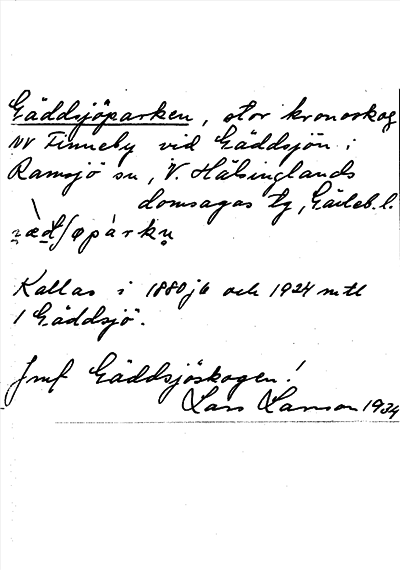 Gäddsjöparken, stor kronoskog
NV Finneby vid Gäddsjön i
Ramsjö sn, V. Hälsinglands
domsagas tg, Gävleb. l.
Kallas i 1880 jb och 1924 mtl
1 Gäddsjö.
Jmf Gäddsjöskogen!
Lars Larsson 1934